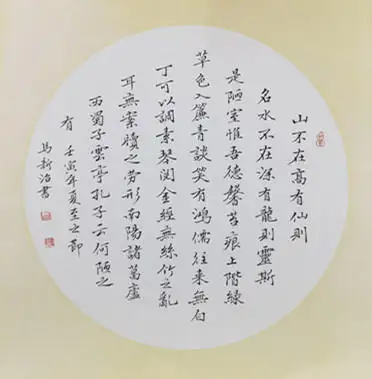 山不在高有仙則
名水不在深有龍則靈斯
是陋室惟吾德馨苔痕上階綠
草色入簾青談笑有鴻儒往來無白
丁可以調素琴閱金經無絲竹之亂
耳無案牘之勞形南陽諸葛廬
西蜀子雲亭孔子云何陋之
有 壬寅年夏至之節
馬新治書